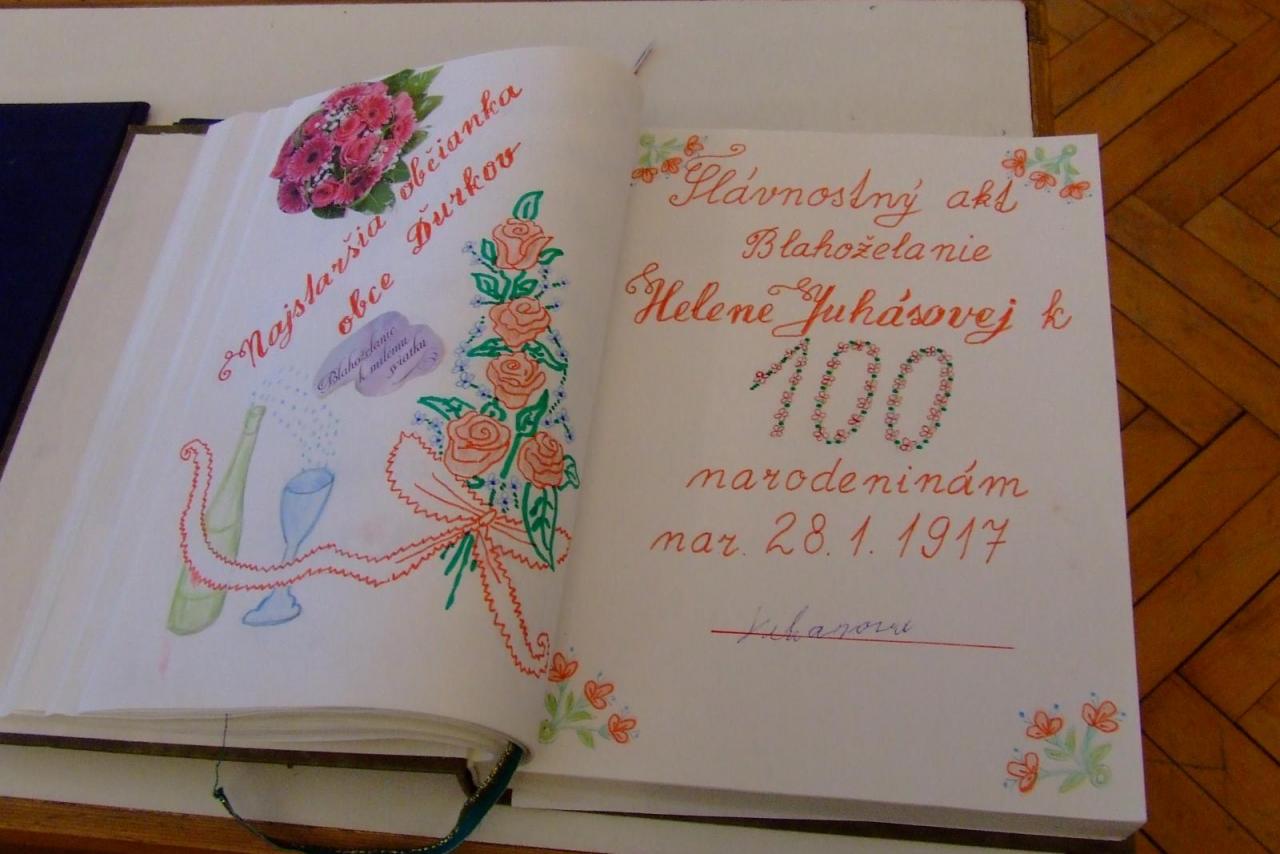 Najstaršia občianka
obce Ďurkov
Blahoželanie
k milému
sviatku
Slávnostný akt
Blahoželanie
Helene Juhásovej k
100
narodeninám
nar. 28. 1. 1917